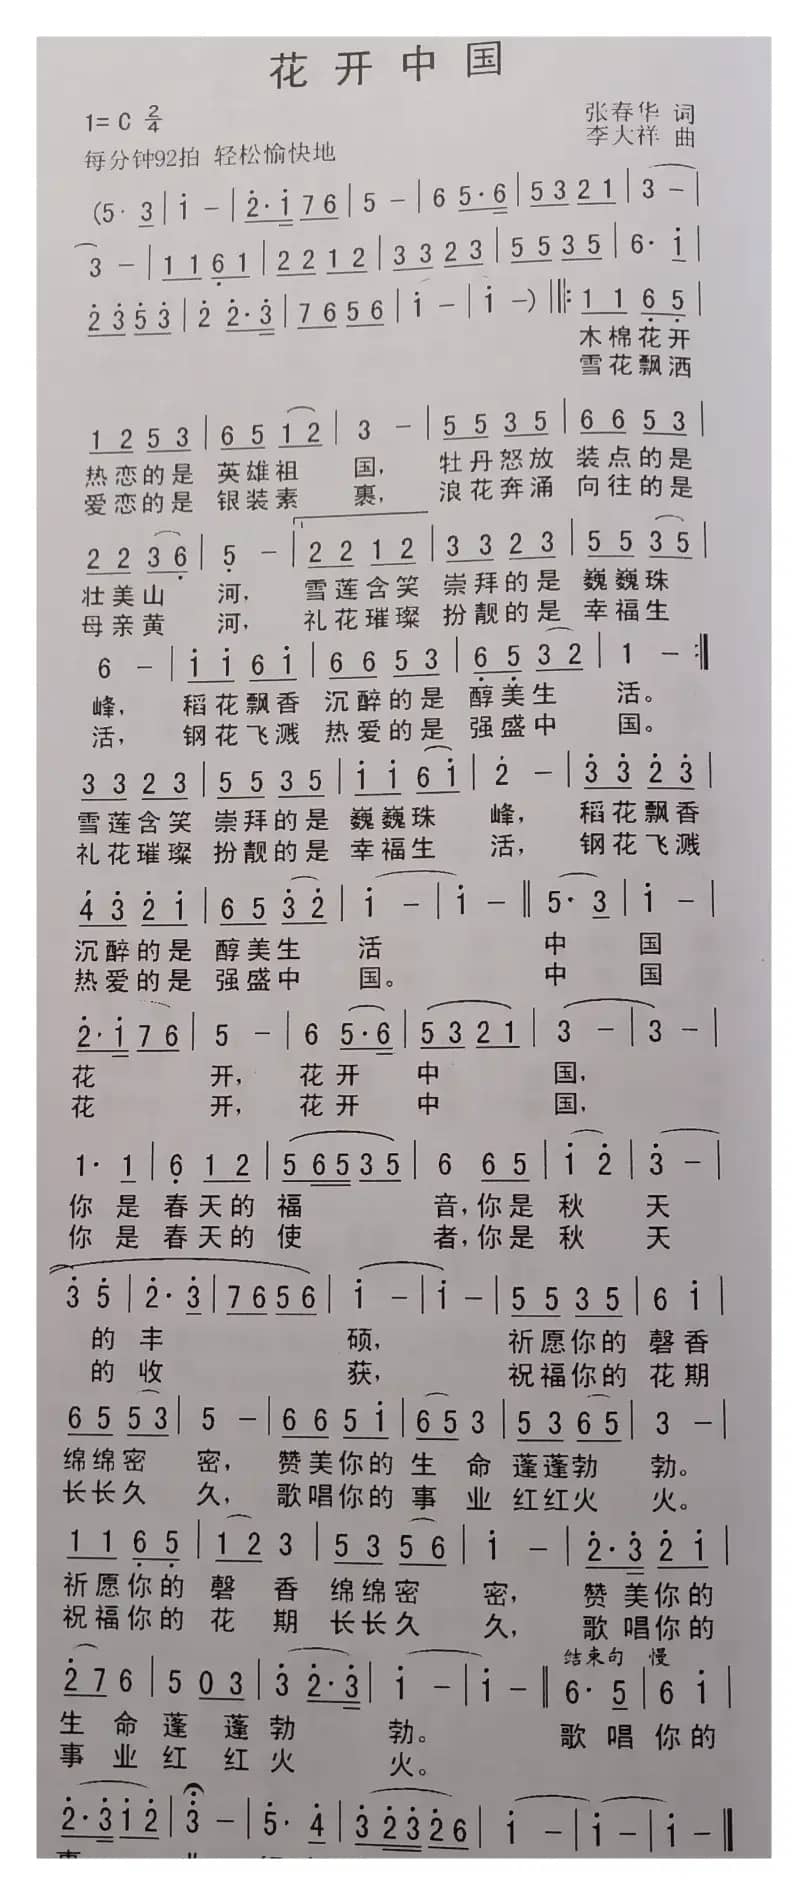 花开中国
1= C 2/4
张春华 词
每分钟92拍 轻松愉快地
李大祥 曲
(5· 3 | i – | 2· i 7 6 | 5 – | 6 5·6 | 5 3 2 1 | 3 – |
3 – | 1 1 6 1 | 2 2 1 2 | 3 3 2 3 | 5 5 3 5 | 6· i |
2 3 5 3 | 2 2·3 | 7 6 5 6 | i – | i –) ‖: 1 1 6 5 |
木棉花开
雪花飘洒
1 2 5 3 | 6 5 1 2 | 3 – | 5 5 3 5 | 6 6 5 3 |
热恋的是 英雄祖 国, 牡丹怒放 装点的是
爱恋的是 银装素 裹, 浪花奔涌 向往的是
2 2 3 6 | 5 – | 2 2 1 2 | 3 3 2 3 | 5 5 3 5 |
壮美山 河, 雪莲含笑 崇拜的是 巍巍珠
母亲黄 河, 礼花璀璨 扮靓的是 幸福生
6 – | i i 6 i | 6 6 5 3 | 6 5 3 2 | 1 – :‖
峰, 稻花飘香 沉醉的是 醇美生 活。
活, 钢花飞溅 热爱的是 强盛中 国。
3 3 2 3 | 5 5 3 5 | i i 6 i | 2 – | 3 3 2 3 |
雪莲含笑 崇拜的是 巍巍珠 峰, 稻花飘香
礼花璀璨 扮靓的是 幸福生 活, 钢花飞溅
4 3 2 i | 6 5 3 2 | i – | i – ‖ 5· 3 | i – |
沉醉的是 醇美生 活 中 国
热爱的是 强盛中 国。 中 国
2· i 7 6 | 5 – | 6 5·6 | 5 3 2 1 | 3 – | 3 – |
花 开, 花开 中 国,
花 开, 花开 中 国,
1· 1 | 6 1 2 | 5 6 5 3 5 | 6 6 5 | i 2 | 3 – |
你 是 春天的 福 音,你是 秋 天
你 是 春天的 使 者,你是 秋 天
3 5 | 2· 3 | 7 6 5 6 | i – | i – | 5 5 3 5 | 6 i |
的 丰 硕, 祈愿你的 磬香
的 收 获, 祝福你的 花期
6 5 5 3 | 5 – | 6 6 5 i | 6 5 3 | 5 3 6 5 | 3 – |
绵绵密 密, 赞美你的 生 命 蓬蓬勃 勃。
长长久 久, 歌唱你的 事 业 红红火 火。
1 1 6 5 | 1 2 3 | 5 3 5 6 | i – | 2· 3 2 i |
祈愿你的 磬 香 绵绵密 密, 赞 美你的
祝福你的 花 期 长长久 久, 歌 唱你的
结束句 慢
2 7 6 | 5 0 3 | 3 2·3 | i – | i – ‖ 6· 5 | 6 i |
生 命 蓬 蓬 勃 勃。 歌 唱 你的
事 业 红 红 火 火。
2·3 1 2 | 3 – | 5· 4 | 3 2 3 2 6 | i – | i – | i – ‖